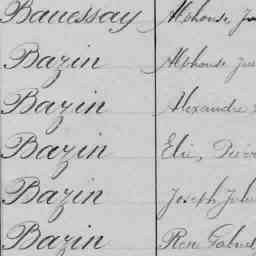 Bauessay Alphonse
Bazin Alphonse
Bazin Alexandre
Bazin Elie, Pierre
Bazin Joseph
Bazin René Gabriel